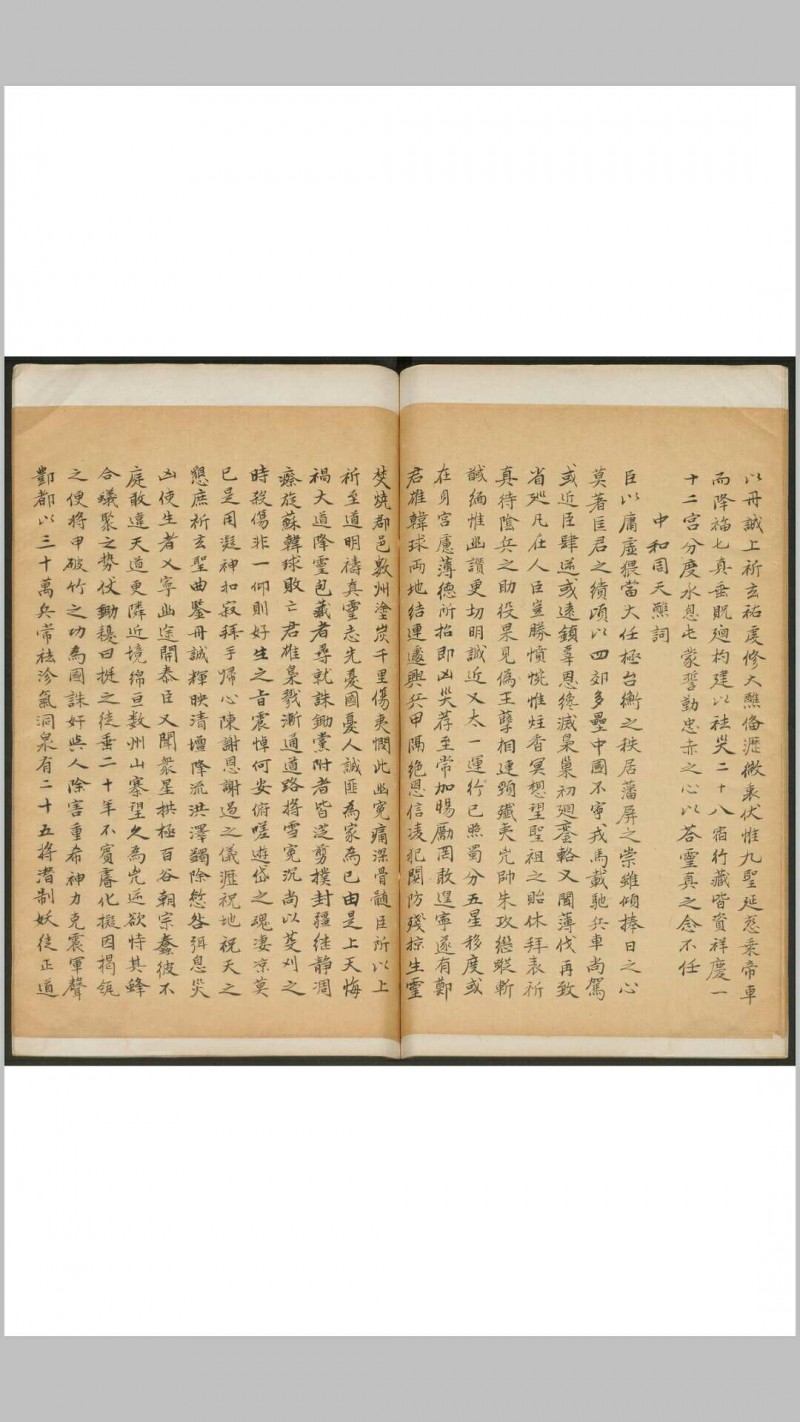 以丹誠上祈玄祐虔修大醮俻瀝微衷伏惟九聖延慈乗帝車
而降福七真垂貺廻杓建以祛災二十八宿行藏皆資祥慶一
十二宮分度永息屯蒙誓勤忠赤之心以荅靈真之念不任
中和周天醮詞
臣以庸虛猥當大任極台衡之秩居藩屏之崇雖傾捧日之心
莫著匡君之績頃以四郊多壘中國不寧戎馬載馳兵車尚駕
或近臣肆逆或遠鎮辜恩纔滅梟巢初廻鑾輅又聞薄伐再致
省廵凡在人臣豈勝憤惋惟炷香冥想望聖祖之貽休拜表祈
真待陰兵之助役果見偽王孽相連頸殱夷兇帥朱玫繼蹤斬
馘緬惟幽讚更切明誠近又太一運行已照蜀分五星移度或
在身宮慮薄德所招即凶災荐至常加暘勵罔敢遑寧遂有鄭
君雄韓球兩地結連遽興兵甲隔絕恩信凌犯関防殘掠生靈
焚燒郡邑數州塗炭千里傷夷憫此幽寃痛深骨髓臣所以上
祈至道明禱真靈志先憂國憂人誠匪為家為已由是上天悔
禍大道降靈包藏者尋就誅鋤黨附者皆從剪撲封疆徃静凋
瘵旋蘇韓球敗亡君雄梟戮漸通道路將雪寃沉尚以芟刈之
時殺傷非一仰則好生之旨震悼何安俯嗟遊岱之魂淒凉莫
已是用凝神扣寂拜手歸心陳謝恩謝過之儀瀝祝地祝天之
懇庶祈玄聖曲鑒丹誠輝映清壇降流洪澤蠲除愆咎弭息災
凶使生者乂寧幽途開泰臣又聞衆星拱極百谷朝宗蠢彼不
庭敢違天道更隣近境綿亘数州山寨望久為兇逆欲恃其蜂
合蟻聚之勢仗鋤耰曰挺之徒垂二十年不賓睿化擬因揭瓴
之便將申破竹之功為國誅奸與人除害重希神力克震軍聲
酆都以三十萬兵常祛沴氣洞泉有二十五將潛制妖徒正道